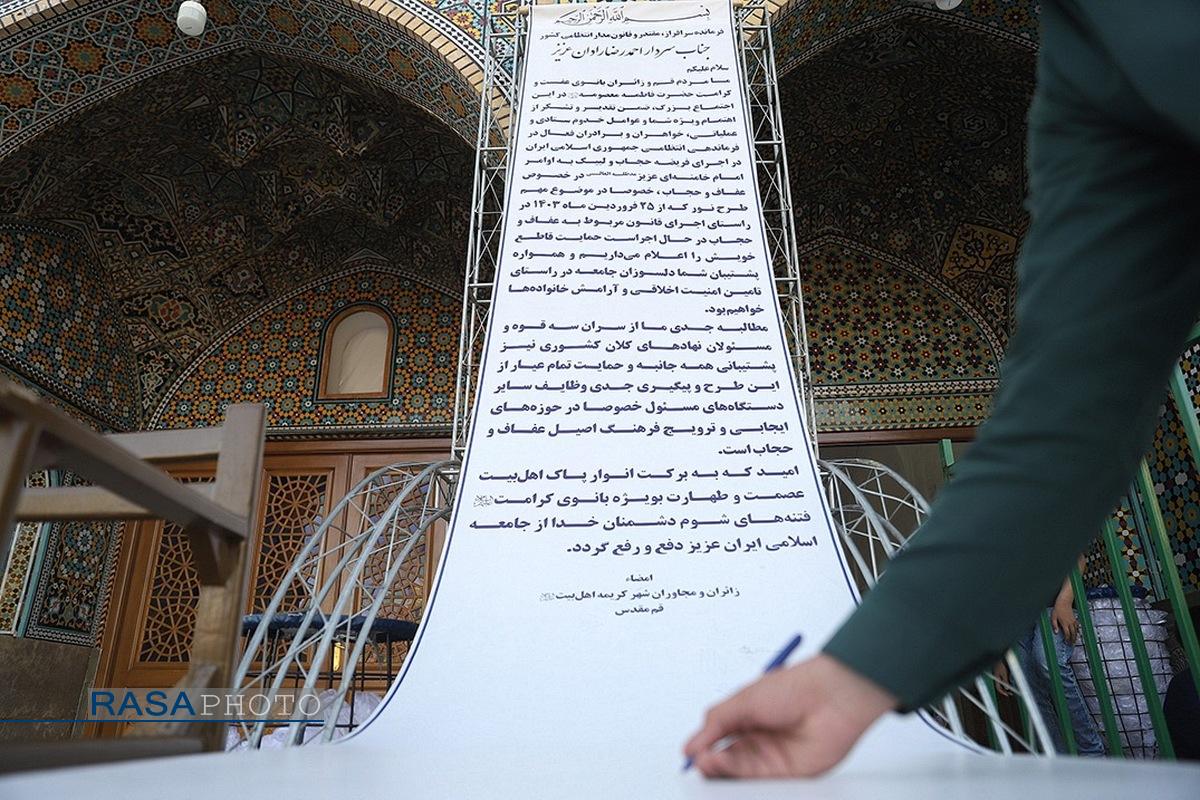 بسم الله الرحمن الرحیم
فرمانده سرافراز، مقتدر و قانون‌مدار انتظامی کشور
جناب سردار احمدرضا رادان عزیز
سلام علیکم
ما مردم قم و زائران بانوی عفت و
کرامت حضرت فاطمه معصومه در این
اجتماع بزرگ، ضمن تقدیر و تشکر از
اهتمام ویژه شما و عوامل خدوم ستادی و
عملیاتی، خواهران و برادران فعال در
فرماندهی انتظامی جمهوری اسلامی ایران
در اجرای فریضه حجاب و لبیک به اوامر
امام خامنه‌ای عزیز مدظله العالی در خصوص
عفاف و حجاب ، خصوصا در موضوع مهم
طرح نور که از ۲۵ فروردین ماه ۱۴۰۳ در
راستای اجرای قانون مربوط به عفاف و
حجاب در حال اجراست حمایت قاطع
خویش را اعلام می‌داریم و همواره
پشتیبان شما دلسوزان جامعه در راستای
تامین امنیت اخلاقی و آرامش خانواده‌ها
خواهیم‌بود.
مطالبه جدی ما از سران سه قوه و
مسئولان نهادهای کلان کشوری نیز
پشتیبانی همه جانبه و حمایت تمام عیار از
این طرح و پیگیری جدی وظایف سایر
دستگاه‌های مسئول خصوصا در حوزه‌های
ایجابی و ترویج فرهنگ اصیل عفاف و
حجاب است.
امید که به برکت انوار پاک اهل‌بیت
عصمت و طهارت بویژه بانوی کرامت
فتنه‌های شوم دشمنان خدا از جامعه
اسلامی ایران عزیز دفع و رفع گردد.
امضاء
زائران و مجاوران شهر کریمه اهل‌بیت
قم مقدس
RASAPHOTO